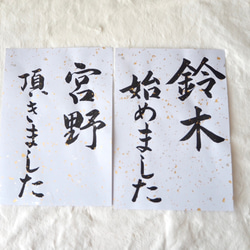 鈴木
始めました
宮野
頂きました